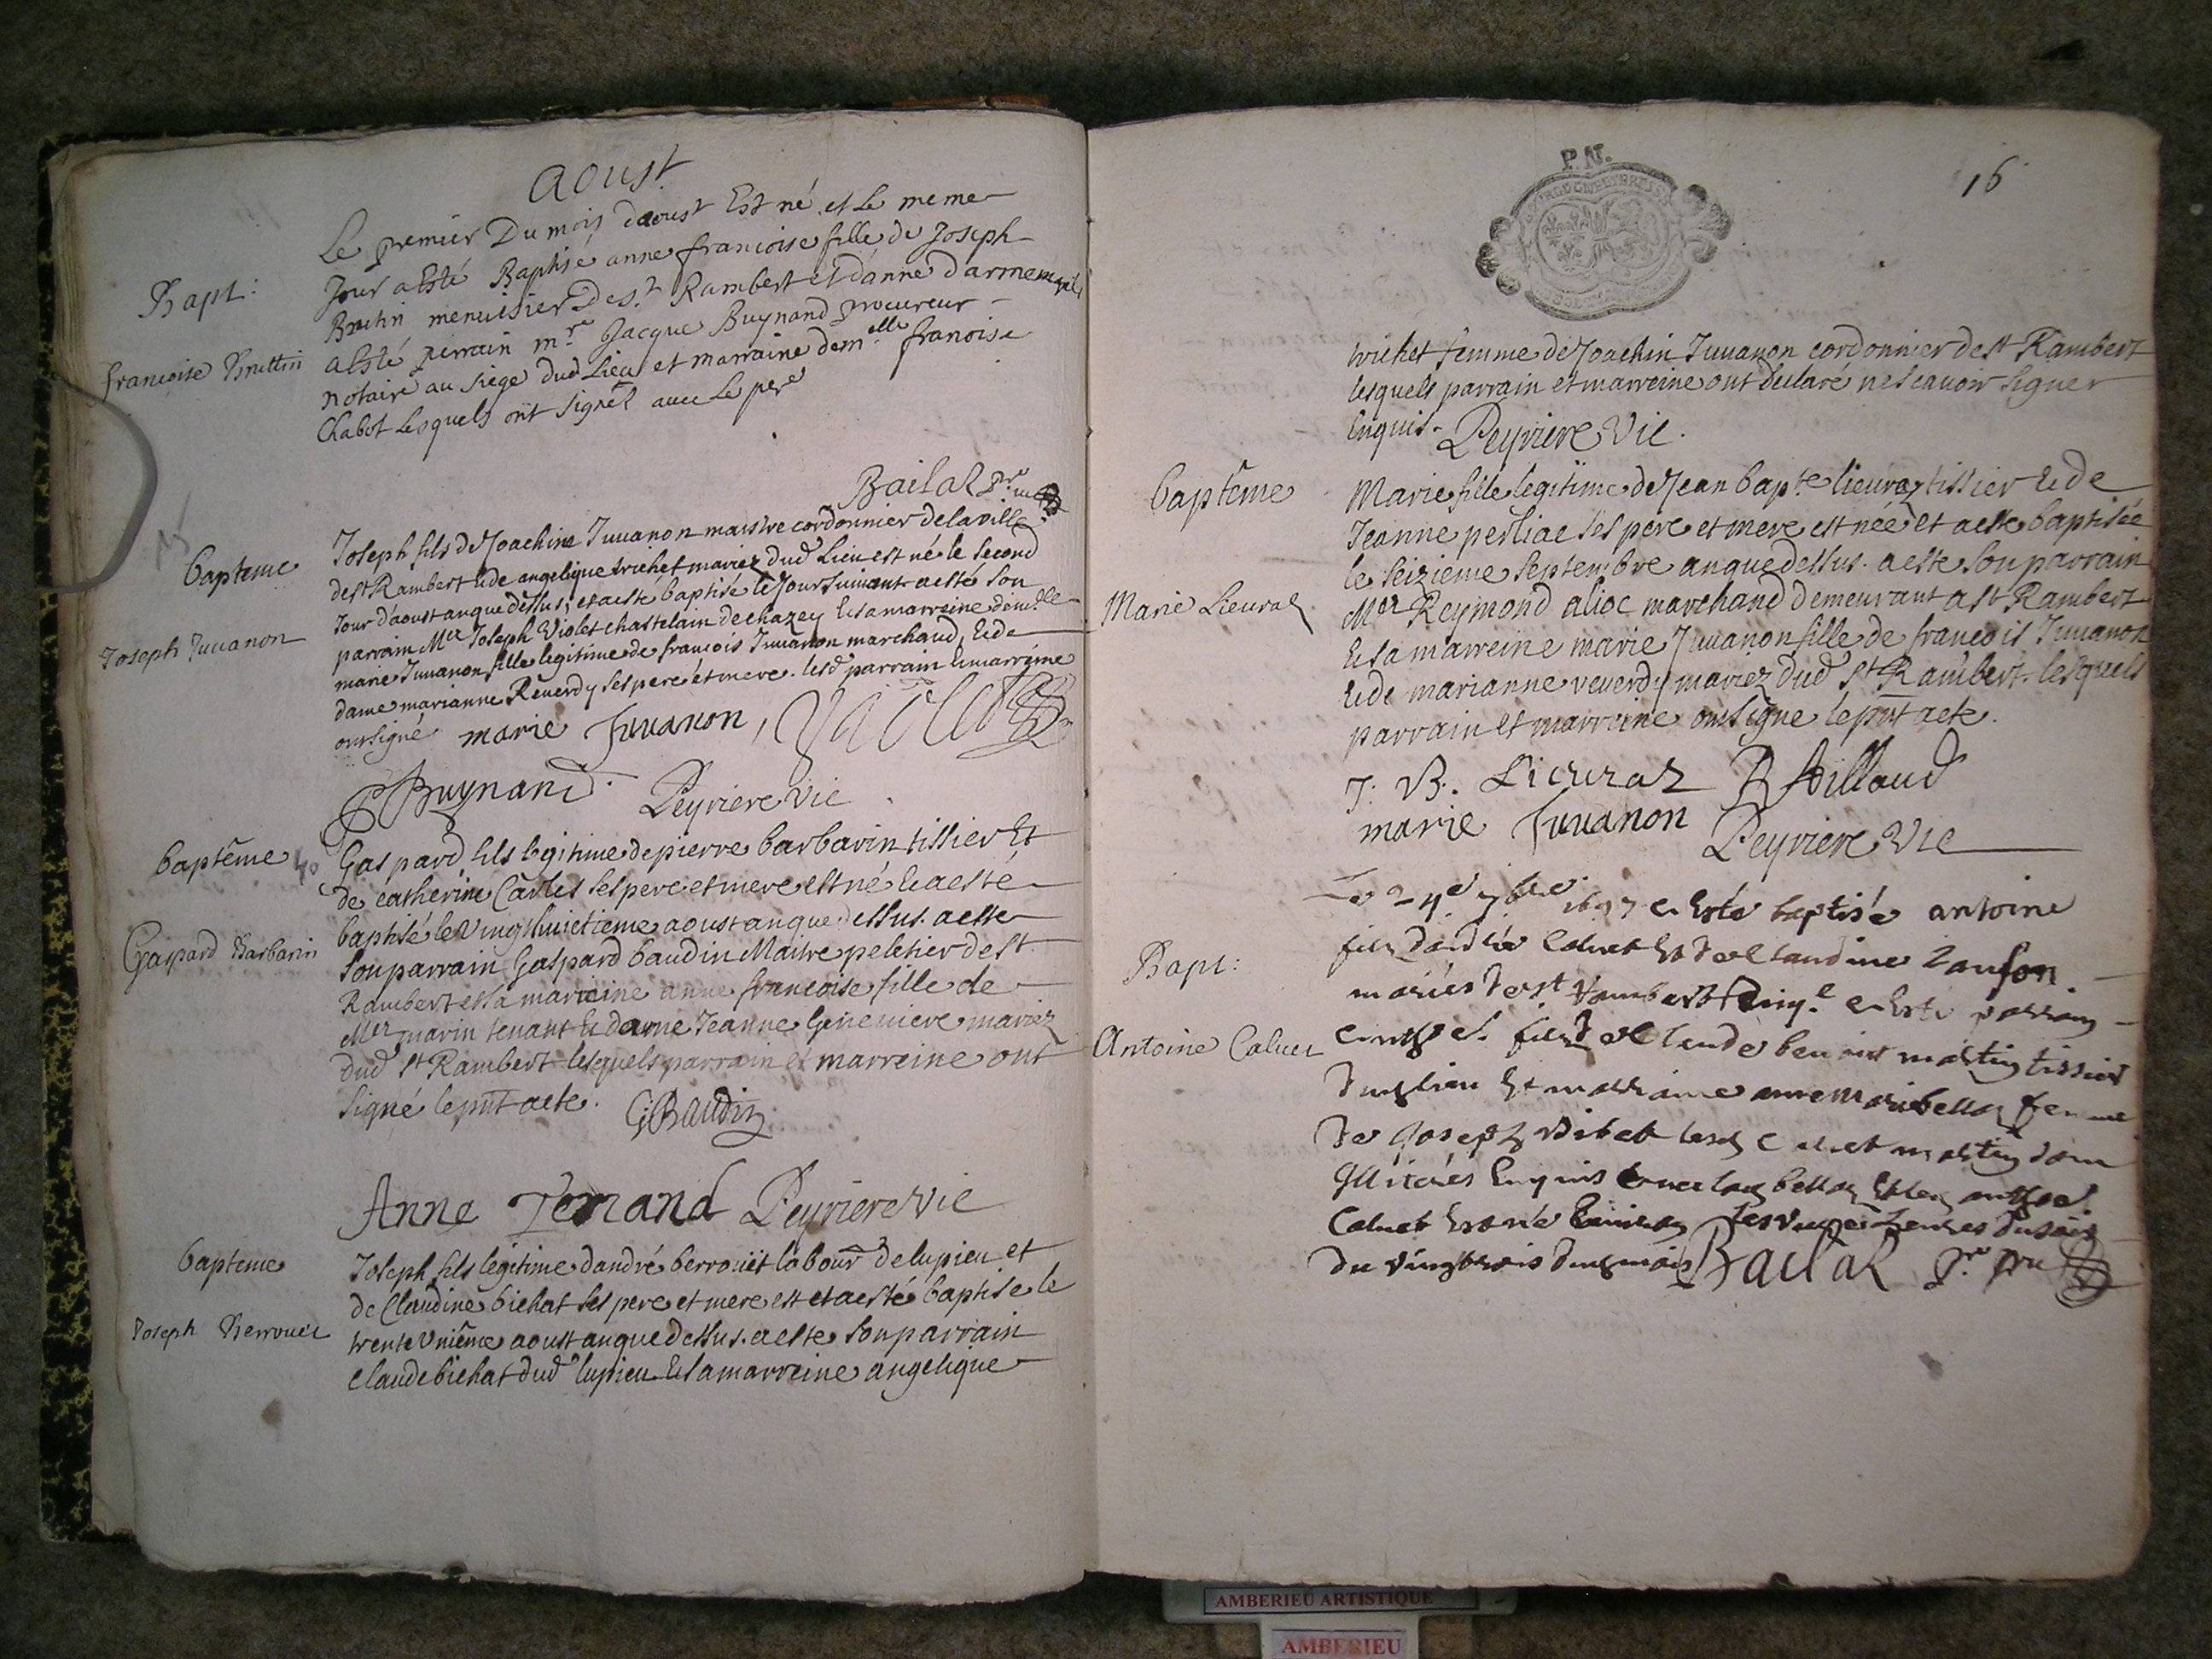 Aoust
Bapt:
françoise Bruttin
Le premier Du mois daoust Est né et Le meme
Jour a Esté Baptisé anne francoise fille de Joseph
Brutin menuisier De st Rambert et d'anne
a Esté perrain mre Jacque Buynand procureur
notaire au siege dud Lieu et marraine demelle francoise
Chabot Lesquels ont signés avec Le pere
Bailat pre
bapteme
Joseph Juuanon
Joseph fils de Joachine Juuanon maistre cordonnier de la ville
de st Rambert & de angelique trichet mariez dud Lieu est né le second
Jour d'aoust an que dessus, et a esté baptisé le Jour suiuant a esté son
parrain Mer Joseph Violet chastelain de chazey & sa marreine demlle
marie Juuanon fille legitime de francois Juuanon marchand, & de
dame marianne Reuerdy ses pere et mere. lesd parrain & marreine
ont signé marie Juuanon, Violet
Buynand. Peyriere vic
baptême
Gaspard Barbarin
Gaspard fils legitime de pierre barbarin tissier Et
de catherine Carles ses pere et mere est né & a esté
baptisé le vingthuictieme aoust an que dessus. a este
son parrain Gaspard baudin Maitre peletier de st
Rambert et sa marreine anne francoise fille de
Mer marin tenant & dame Jeanne Geneuiere mariez
dud st Rambert lesquels parrain et marreine ont
signé le pnt acte. G Baudin
Anne Tenand Peyriere vic
bapteme
Joseph Berrouet
Joseph fils légitime dandré berrouët labour de lupieu et
de Claudine bichat ses pere et mere est et a esté baptise le
trente vnième aoust an que dessus. a este son parrain
claude bichat dud lupieu & sa marreine angelique
P.N.
16
trichet femme de Joachin Juuanon cordonnier de st Rambert
lesquels parrain et marreine ont declaré ne scauoir signer
Enquis. Peyriere Vic.
baptême
Marie Lieuraz
Marie fille legitime de Jean bapte. lieuraz tissier & de
Jeanne perliac ses pere et mere est née et a este baptisée
le seizieme septembre an que dessus. a este son parrain
Mer Reymond alioc marchand demeurant a st Rambert
& sa marreine marie Juuanon fille de francois Juuanon
& de marianne reuerdy mariez dud st Rambert. lesquels
parrain et marreine ont signe le pnt acte.
J. B. Lieuraz R Aillaud
marie Juuanon Peyriere Vic
Bapt:
Antoine Caluet
Le 24e 7bre 1697 a Esté baptisé antoine
fils d'andré Caluet Et de Claudine
mariés de st Rambert a Esté parrain
fils de Claude benoist martin tissier
dud lieu Et marraine anne femme
de Joseph Bibet Caluet martin
Illiterés Enquis
Caluet
du vingtrois dud mois Bailat pre
AMBERIEU ARTISTIQUE
AMBERIEU